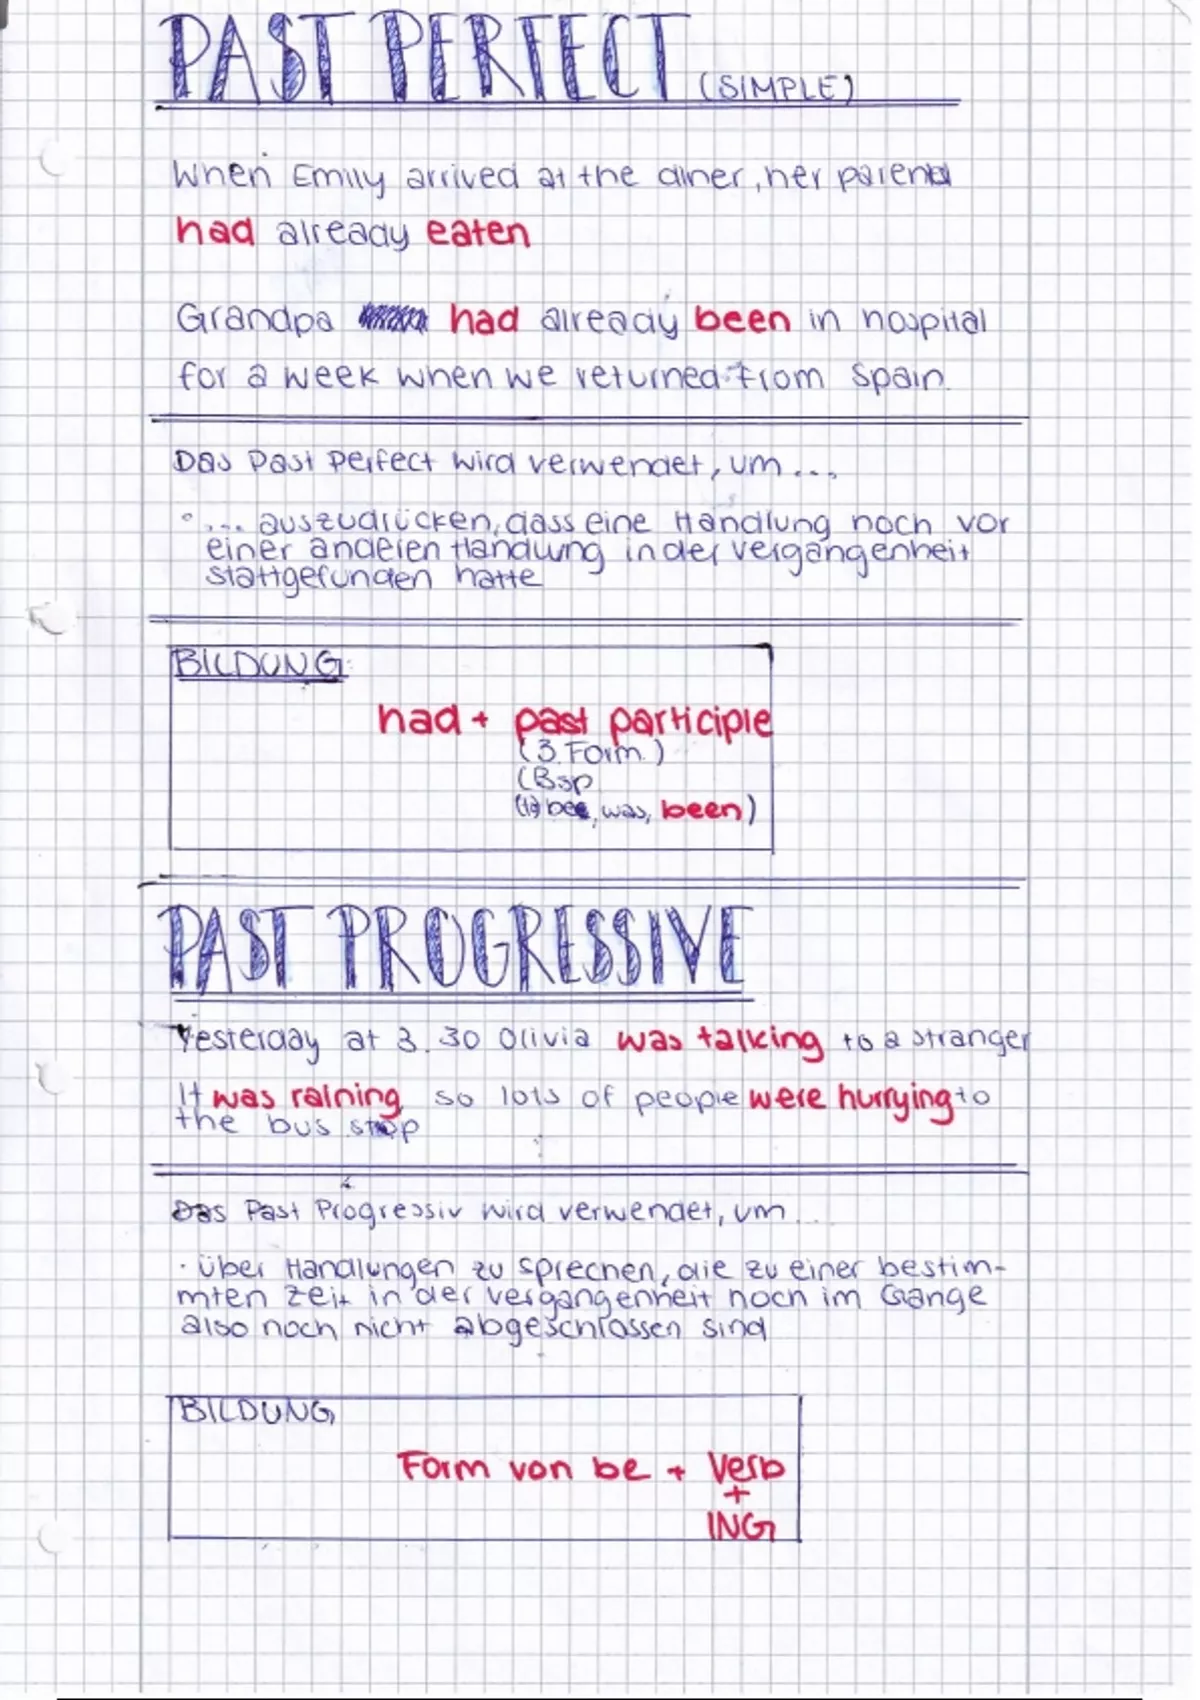 PAST PERFECT (SIMPLE)
When Emily arrived at the diner, her parents
had already eaten
Grandpa had already been in hospital
for a week when we returned from Spain.
Das Past Perfect wird verwendet, um ...
• ... auszudrücken, dass eine Handlung noch vor
einer anderen Handlung in der Vergangenheit
stattgefunden hatte
BILDUNG:
had + past participle
(3. Form.)
(Bsp
be, was, been)
PAST PROGRESSIVE
Yesterday at 3.30 Olivia was talking to a stranger
It was raining, so lots of people were hurrying to
the bus stop
Das Past Progressiv wird verwendet, um ...
· über Handlungen zu sprechen, die zu einer bestim-
mten Zeit in der Vergangenheit noch im Gange
also noch nicht abgeschlossen sind
BILDUNG
Form von be + Verb
+
ING